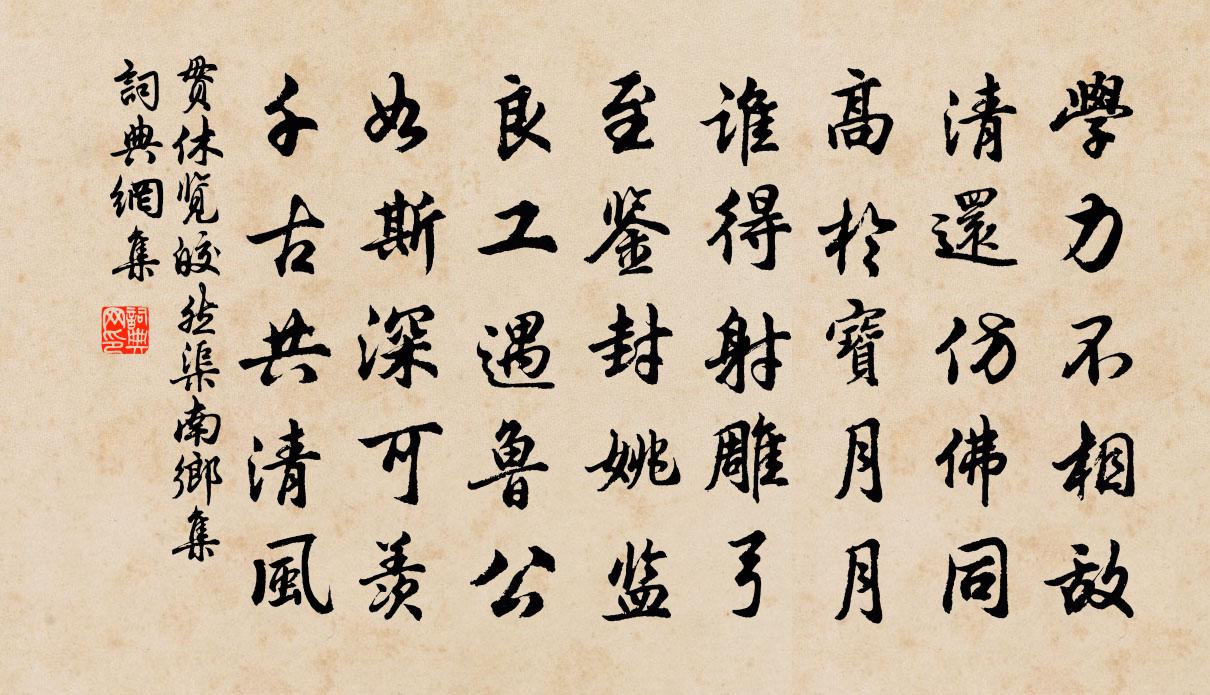 學力不相敌
清還仿佛同
髙於寶月月
谁得射雕弓
至鉴封姚监
良工遇魯公
如斯深可羡
千古共清風
貫休览皎然渠南鄉集
詞典網集
詞典网印